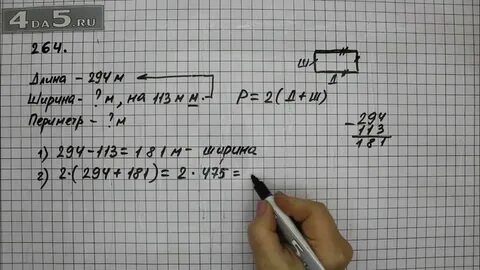 4da5.ru
264.
Длина – 294 м
Ширина – ? м, на 113 м м.
Периметр – ? м
Ш
Д
P = 2(Д+Ш)
− 294
113
181
1) 294 – 113 = 181 м – ширина
2) 2·(294 + 181) = 2 · 475 =